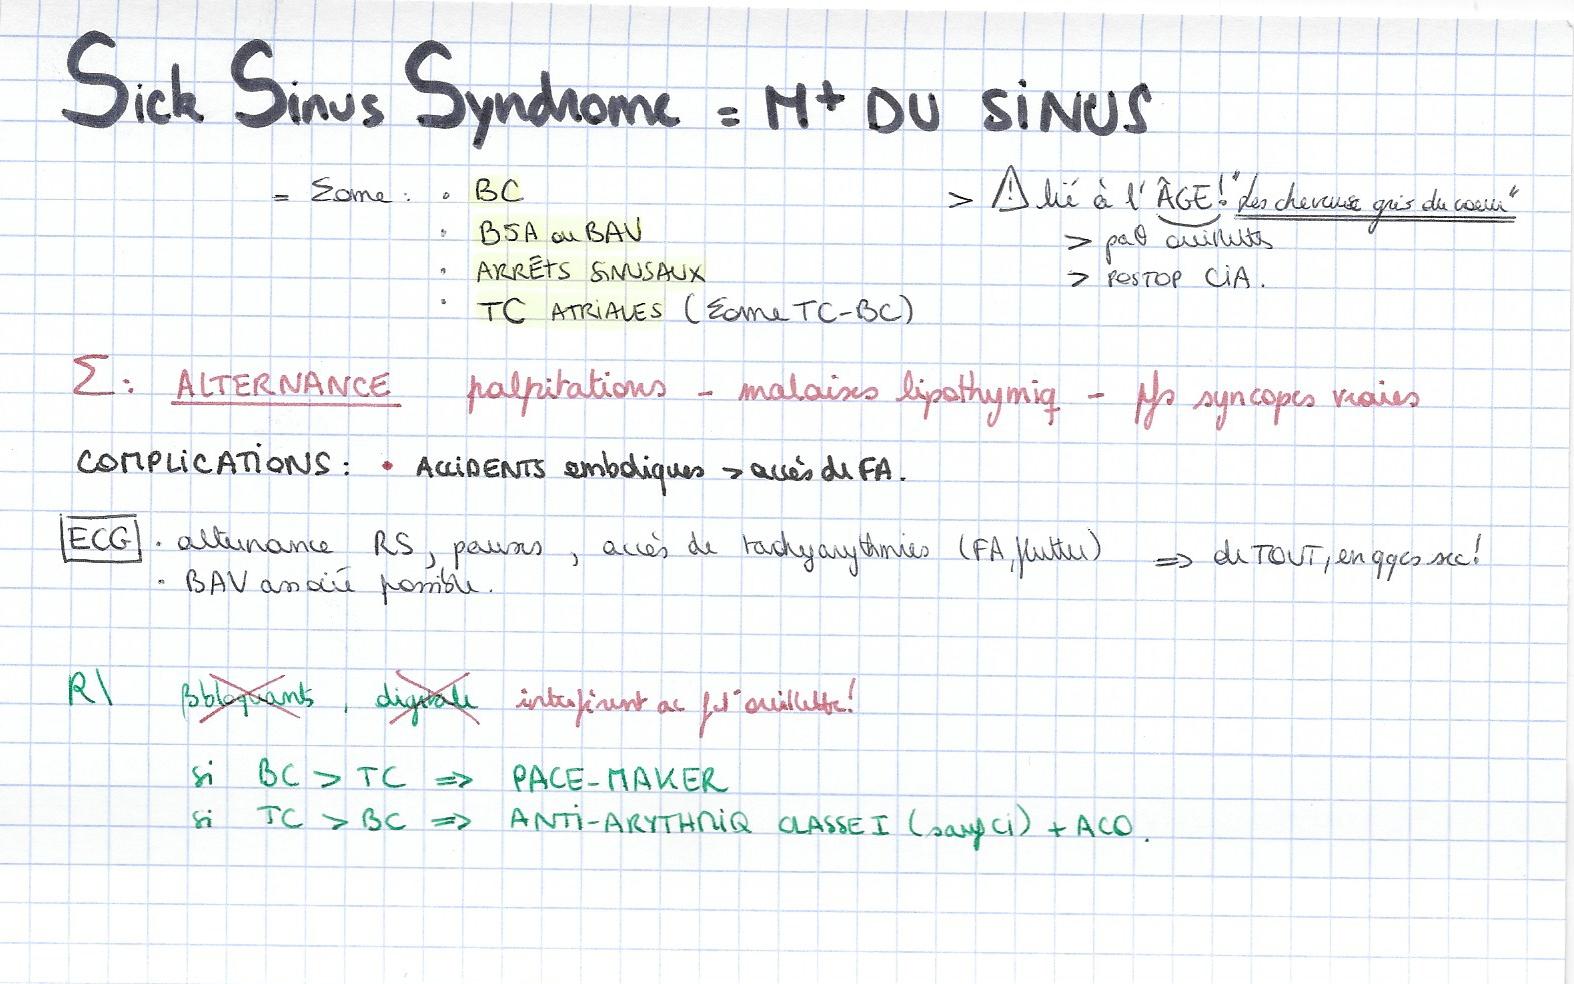 Sick Sinus Syndrome = M+ DU SINUS
= Σome : • BC
• BSA ou BAV
• ARRÊTS SINUSAUX
• TC ATRIALES (Σome TC-BC)
> ⚠ lié à l'ÂGE! "Les cheveux gris du coeur"
> paθ oreillettes
> POSTOP CIA.
Σ : ALTERNANCE palpitations - malaises lipothymiq - pfs syncopes vraies
COMPLICATIONS : • ACCIDENTS emboliques > accès de FA.
ECG • alternance RS, pauses, accès de tachyarythmies (FA, flutter) => de TOUT, en qqes sec!
• BAV associé possible.
R\ βbloquants, digitale interfèrent ac fct° oreillette!
si BC > TC => PACE-MAKER
si TC > BC => ANTI-ARYTHMIQ CLASSE I (sauf CI) + ACO.